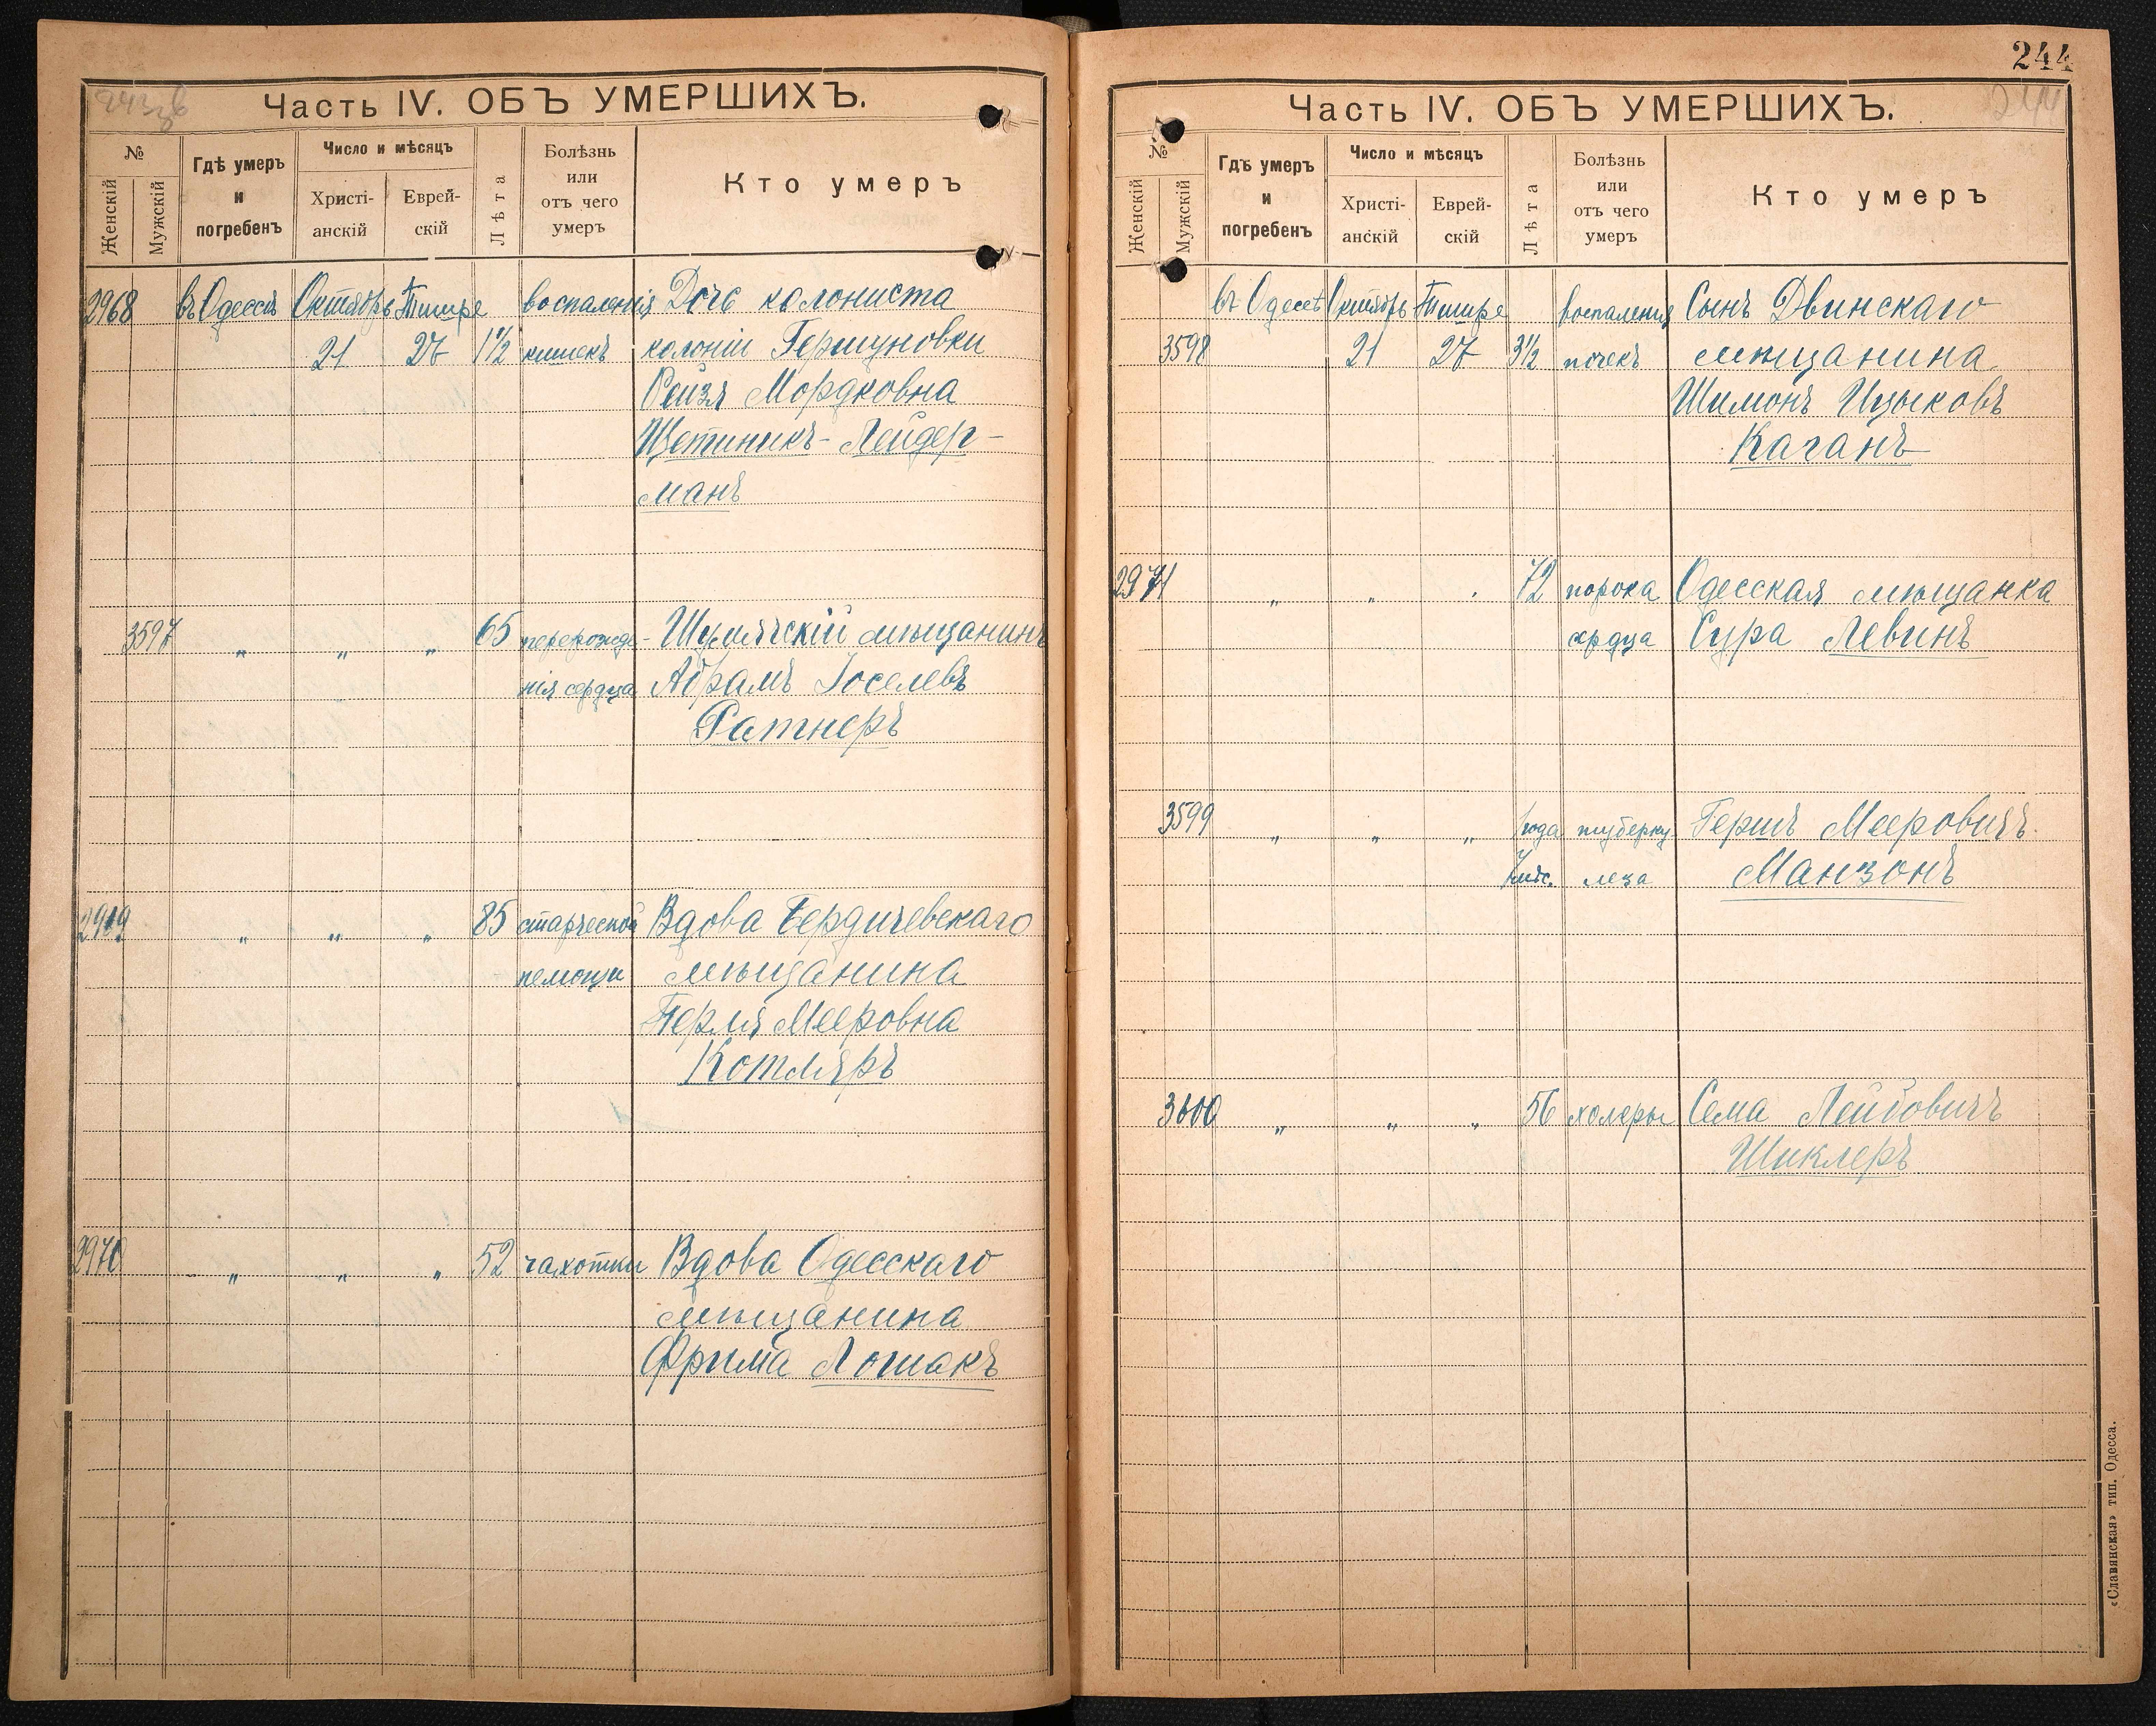 243 об
Часть IV. ОБЪ УМЕРШИХЪ.
№
Женскій
Мужскій
Гдѣ умеръ
и
погребенъ
Число и мѣсяцъ
Христі-
анскій
Еврей-
скій
Лѣта
Болѣзнь
или
отъ чего
умеръ
Кто умеръ
2968 въ Одессѣ Октябрь Тишре воспаленія Дочь колониста
21 27 1 1/2 кишекъ колоніи Гершуновки
Рейзя Мордковна
Щетиникъ-Лейдер-
манъ
3597 " " " 65 перерожде- Шумячскій мѣщанинъ
нія сердца Абрамъ Іоселевъ
Ратнеръ
2969 " " " 85 старческой Вдова Бердичевскаго
немощи мѣщанина
Перля Мееровна
Котляръ
2970 " " " 52 чахотки Вдова Одесскаго
мѣщанина
Фрима Лошакъ
244
244
Часть IV. ОБЪ УМЕРШИХЪ.
№
Женскій
Мужскій
Гдѣ умеръ
и
погребенъ
Число и мѣсяцъ
Христі-
анскій
Еврей-
скій
Лѣта
Болѣзнь
или
отъ чего
умеръ
Кто умеръ
въ Одессѣ Октябрь Тишре воспаленія Сынъ Двинскаго
3598 21 27 3 1/2 почекъ мѣщанина
Шимонъ Ицыковъ
Каганъ
2971 " " " 72 порока Одесская мѣщанка
сердца Сура Левинъ
3599 " " " 1 года туберку- Гершъ Мееровичъ
7 мѣс. леза Манзонъ
3600 " " " 56 холеры Сема Лейбовичъ
Шиклеръ
«Славянская» тип. Одесса.